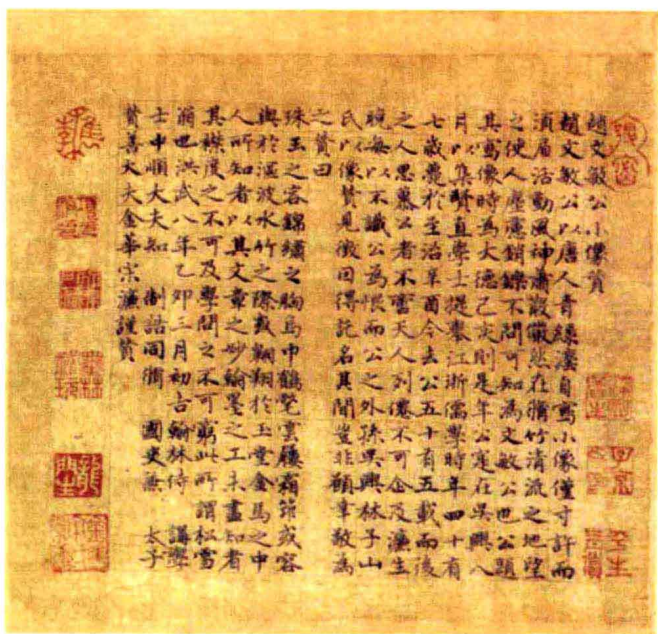 趙文敏公小像贊
趙文敏公以唐人青綠灋自寫小像僅寸許而
須眉活動風神蕭散儼然在攢竹清流之地望
之使人塵慮銷鑠不問可知為文敏公也公題
其寫像時為大德己亥則是年公寔在吳興八
月以集賢直學士提舉江浙儒學時年四十有
七歲薨於至治辛酉今去公五十有五載而後
之人思慕公者不啻天人列僊不可企及濂生
晚每以不識公為恨而公之外孫吳興林子山
氏以像贊見徵因得託名其間豈非願幸敬為
之贊曰
珠玉之容錦繡之胸烏巾鶴氅雲履霜筇或容
與於滄波水竹之際或翱翔於玉堂金馬之中
人所知者以其文章之妙翰墨之工未盡知者
其襟度之不可及學問之不可窮此所謂松雪
翁也洪武八年乙卯三月初吉翰林侍 講學
士中順大夫知 制誥同脩 國史兼 太子
贊善大夫金華宋濂謹贊